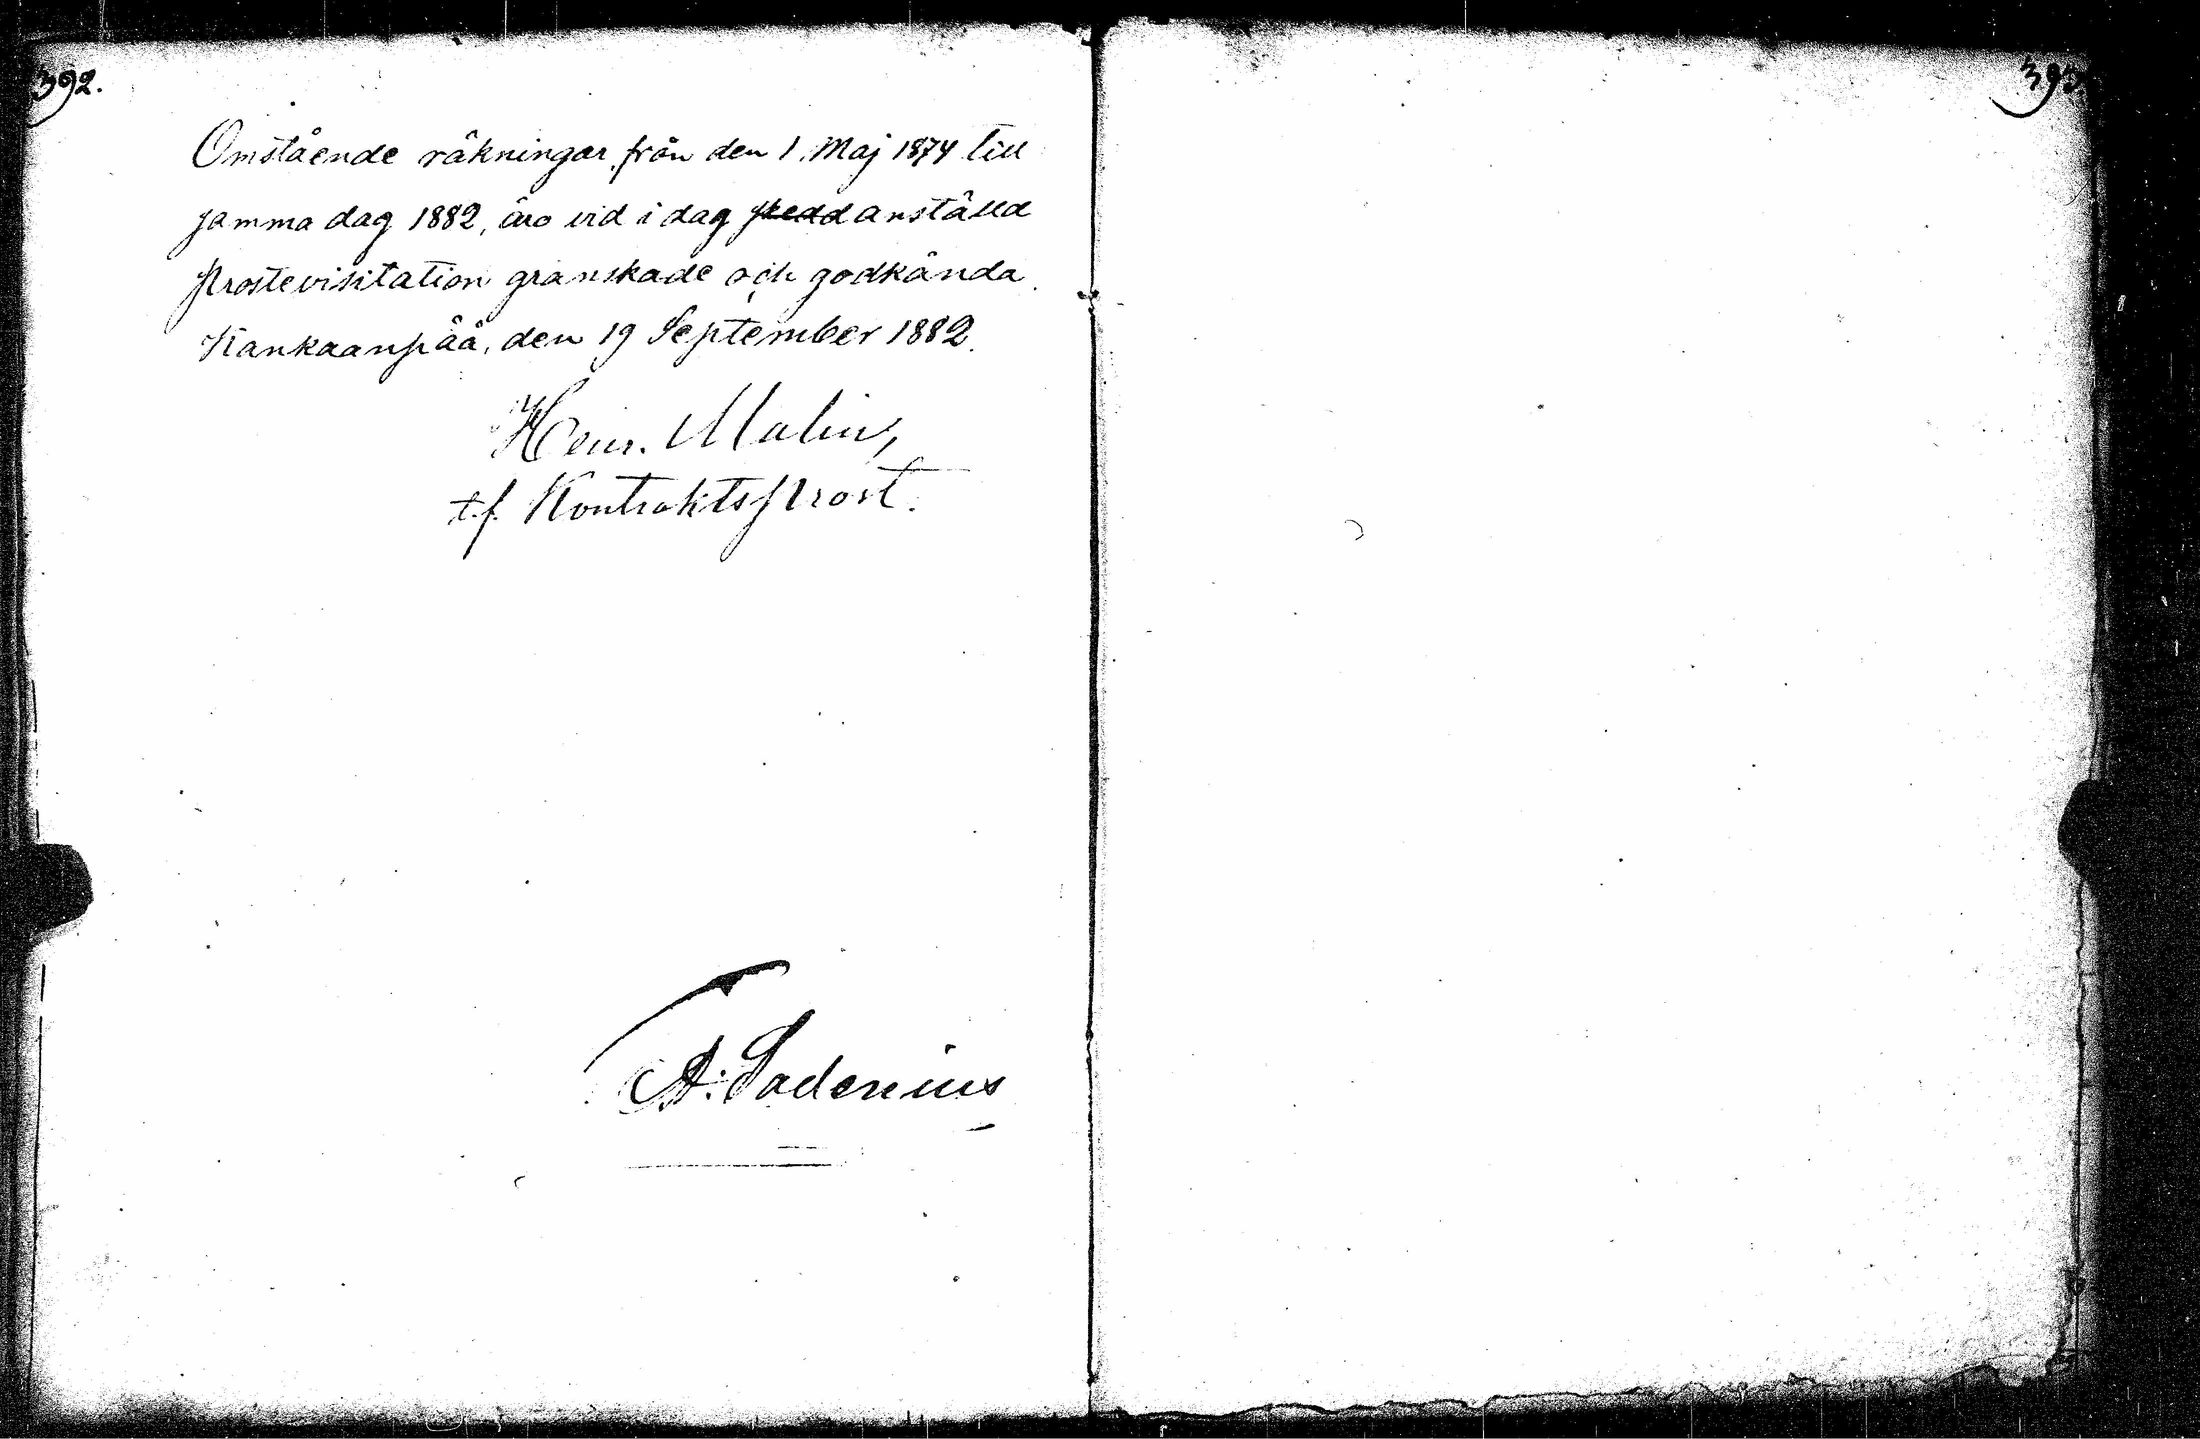 392.
Omstående räkningar från den 1. Maj 1874 till
samma dag 1882, äro vid i dag skedd anställd
prostevisitation granskade och godkända.
Kankaanpää, den 19 September 1882.
Henr. Malin,
t.f. Kontraktsprost.
A. Ladenius
393.